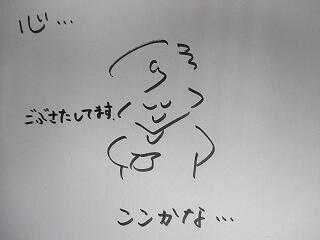 心…
ごぶさたしてます。
ここかな…